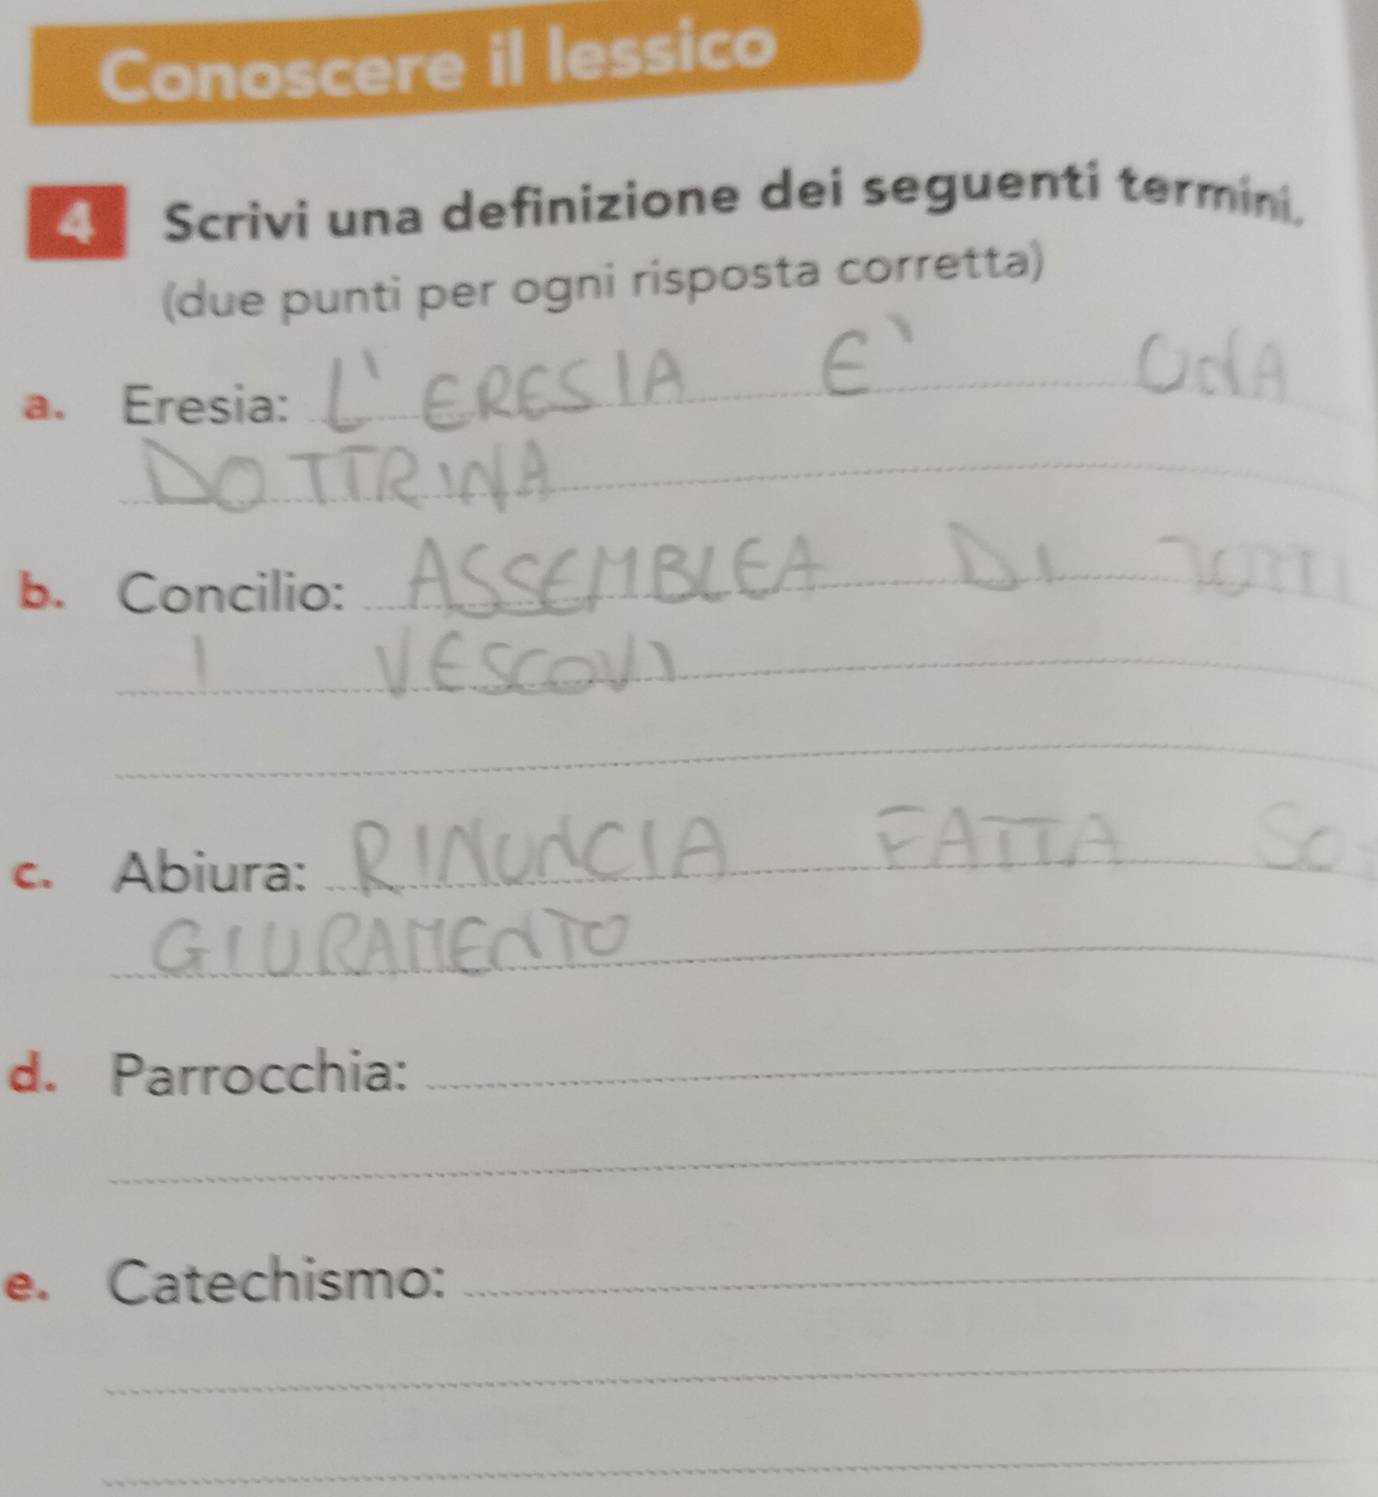 Conoscere il lessico
4 Scrivi una definizione dei seguenti termini.
(due punti per ogni risposta corretta)
a. Eresia: L'ERESIA E' UNA
DOTTRINA
b. Concilio: ASSEMBLEA DI TUTTI
I VESCOVI
c. Abiura: RINUNCIA FATTA SO
GIURAMENTO
d. Parrocchia:
e. Catechismo: